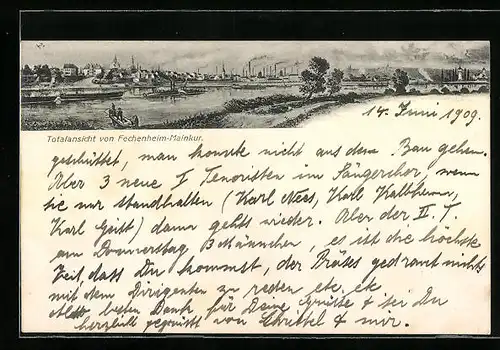 14. Juni 1909.
Totalansicht von Fechenheim-Mainkur.
geschüttet, man konnte nicht aus dem Bau gehen.
Aber 3 neue I Tenoristen im Sängerchor, wenn
sie nur standhalten (Karl Nees, Karl
Karl) dann gehts wieder. Aber der II. T.
am Donnerstag 3 Männchen, es ist die höchste
Zeit, dass Du kommst, der Präses gedraut nichts
mit dem Dirigenten zu reden etc. etc.
Also besten Dank für Deine Grüsse & sei Du
herzlich gegrüsst von & mir.